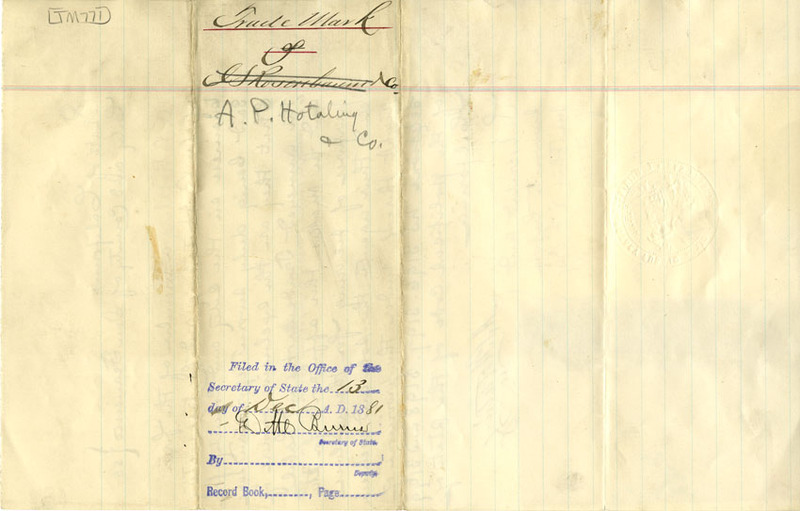 TM771
Trade Mark
of
J S Rosenbaum & Co.
A. P. Hotaling
& Co.
Filed in the Office of the
Secretary of State the 13
day of Dec A. D. 1881
Secretary of State.
By
Deputy.
Record Book, , Page